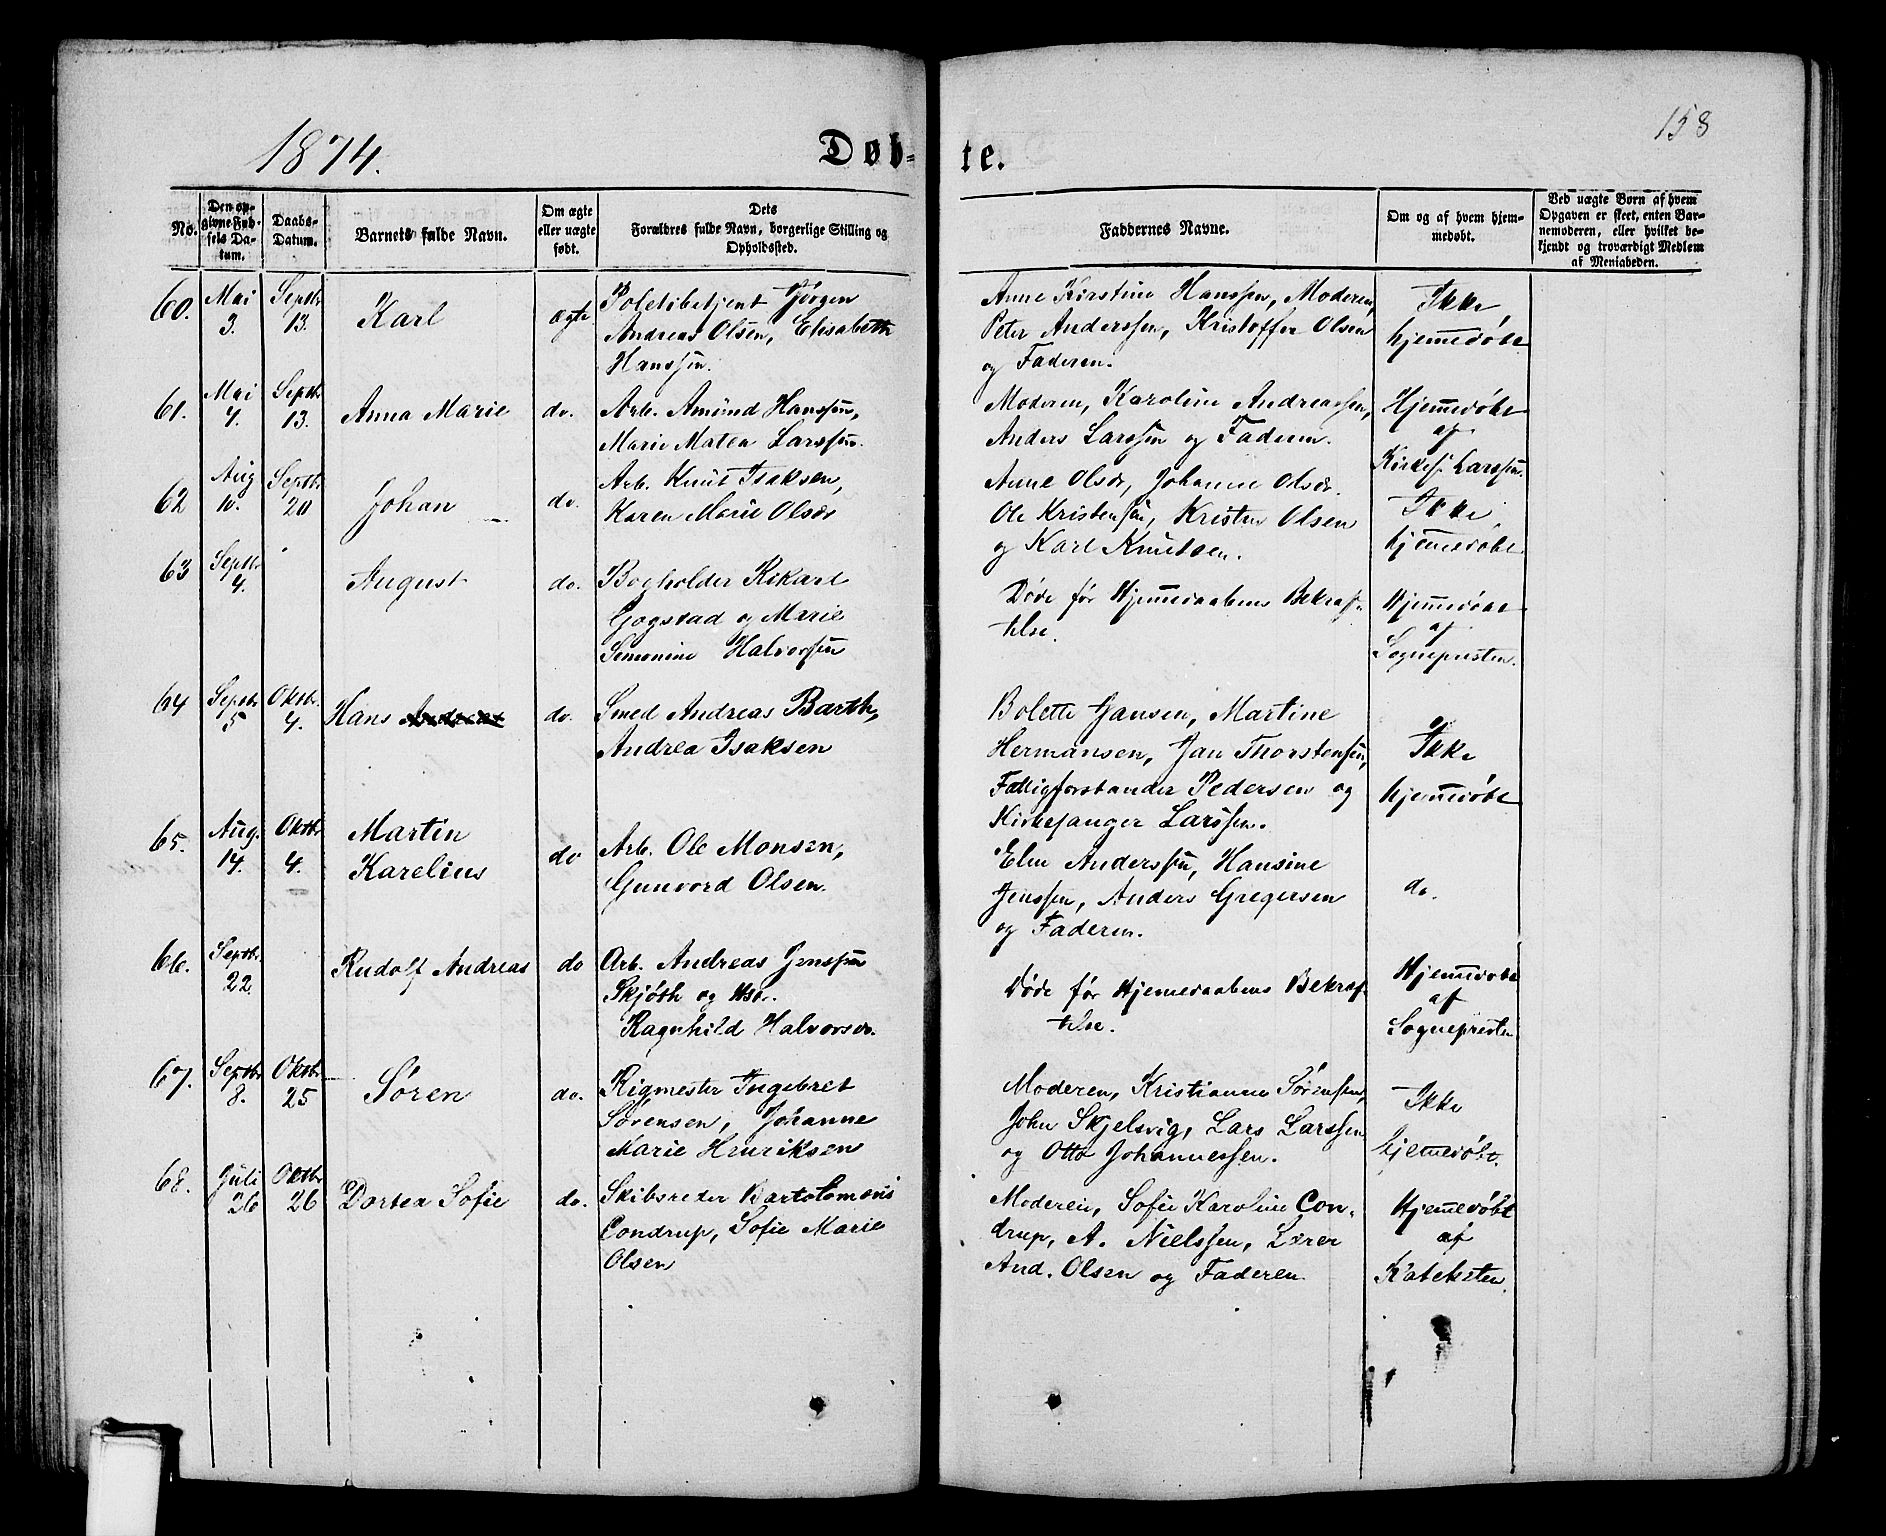 1874.
Døb-
te.
158
No.
Den opgivne Fødsels Datum.
Daabs-Datum.
Barnets fulde Navn.
Om ægte eller uægte født.
Dets Forældres fulde Navn, borgerlige Stilling og Opholdssted.
Faddernes Navne.
Om og af hvem hjemmedøbt.
Ved uægte Børn af hvem Opgaven er skeet, enten Barnemoderen, eller hvilket bekjendt og troværdigt Medlem af Menigheden.
60.
Mai 3.
Septbr 13.
Karl
ægte
Poletibetjent Jörgen
Andreas Olsen, Elisabeth
Hanssen.
Anne Kirstine Hanssen, Moderen,
Peter Anderssen, Kristoffer Olsen
og Faderen.
Ikke
hjemmedøbt
61.
Mai 4.
Septbr 13.
Anna Marie
do.
Arb. Amund Hanssen,
Marie Matea Larssen.
Moderen, Karoline Andreassen,
Anders Larssen og Faderen.
Hjemmedøbt
af
Kirkes. Larssen.
62
Aug 10.
Septbr 20
Johan
do.
Arb. Knut Isaksen,
Karen Marie Olsdr
Anne Olsdr, Johanne Olsdr.
Ole Kristensen, Kristen Olsen
og Karl Knutsen.
Ikke
hjemmedøbt
63
Septbr 4.
August
do.
Bogholder Rikard
Gogstad og Marie
Simonine Halvorsen
Døde før Hjemmedaabens Bekræf-
telse.
Hjemmedøbt
af
Sognepresten.
64
Septbr 5
Oktbr. 4.
Hans Andreas
do.
Smed Andreas Barth,
Andrea Isaksen
Bolette Jansen, Martine
Hermansen, Jan Thorstensen,
Fattigforstander Pedersen og
Kirkesanger Larssen.
Ikke
hjemmedøbt
65.
Aug. 14.
Oktbr 4.
Martin
Karelius
do
Arb. Ole Monsen,
Gunvord Olsen.
Elen Anderssen, Hansine
Jenssen, Anders Gregersen
og Faderen.
do.
66.
Septbr. 22.
Rudolf Andreas
do
Arb. Andreas Jenssen
Skjöth og Hstr.
Ragnhild Halvorsdr.
Døde før Hjemmedaabens Bekræf-
telse.
Hjemmedøbt
af
Sognepresten
67.
Septbr 8.
Oktbr 25
Sören
do.
Rigmester Ingebret
Sörensen, Johanne
Marie Henriksen
Moderen, Kristianne Sørensen,
John Skjelsvig, Lars Larssen
og Otto Johannessen.
Ikke
hjemmedøbt.
68.
Juli 26
Oktbr 26
Dortea Sofie
do.
Skibsreder Bartolomæus
Condrup, Sofie Marie
Olsen
Moderen, Sofie Karoline Con-
drup, A. Nielssen, Lærer
And. Olsen og Faderen
Hjemmedøbt
af
Kateketen.